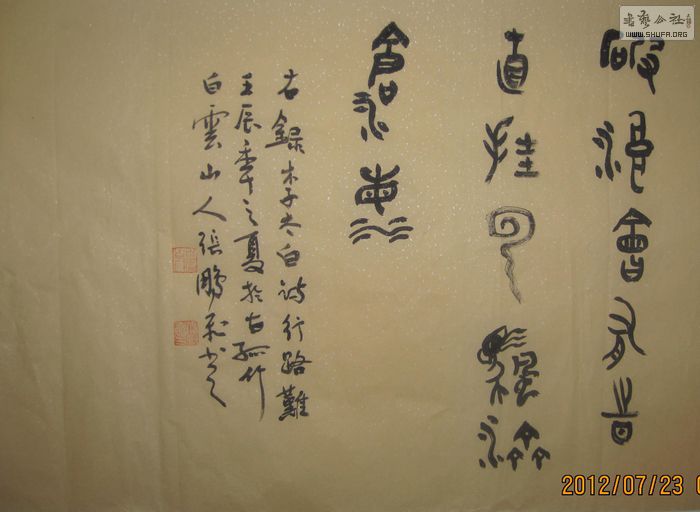 破浪會有時
直挂雲帆濟
滄海
右録木子太白詩行路難
壬辰年之夏於古孤竹
白雲山人張鵬書之
書藝公社
WWW.SHUFA.ORG
2012/07/23